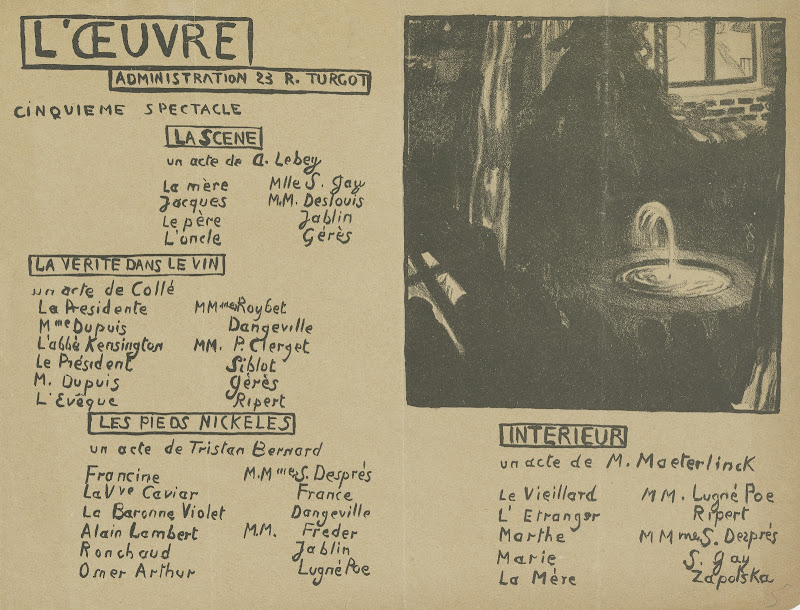 L'ŒUVRE
ADMINISTRATION 23 R. TURGOT
CINQUIEME SPECTACLE
LA SCENE
un acte de A. Lebey
La mère Mlle S. Gay
Jacques M.M. Deslouis
Le père Jablin
L'oncle Gérès
LA VERITE DANS LE VIN
un acte de Collé
La Presidente MMmes Roybet
Mme Dupuis Dangeville
L'abbè Kensington MM. P. Clerget
Le Président Siblot
M. Dupuis Gérès
L'Evêque Ripert
LES PIEDS NICKELES
un acte de Tristan Bernard
Francine M.Mmes S. Desprès
La Vve Caviar France
La Baronne Violet Dangeville
Alain Lambert M.M. Freder
Ronchaud Jablin
Omer Arthur Lugné Poe
INTERIEUR
un acte de M. Maeterlinck
Le Vieillard MM. Lugné Poe
L'Etranger Ripert
Marthe MMmes S. Desprès
Marie S. Gay
La Mère Zapolska